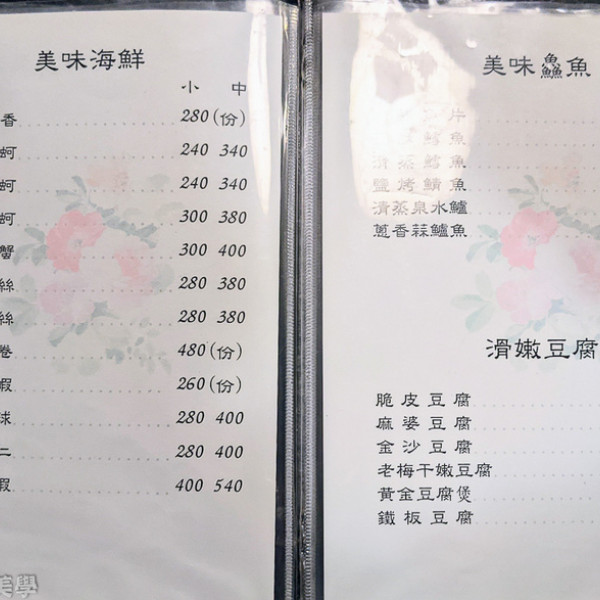 美味海鮮
小 中
香 280(份)
蚵 240 340
蚵 240 340
蚵 300 380
蟹 300 400
絲 280 380
絲 280 380
卷 480(份)
蝦 260(份)
球 280 400
二 280 400
蝦 400 540
美學
美味鱻魚
片
鱈魚
清蒸鱈魚
鹽烤鯖魚
清蒸泉水鱸
蔥香蒜鱸魚
滑嫩豆腐
脆皮豆腐
麻婆豆腐
金沙豆腐
老梅干嫩豆腐
黃金豆腐煲
鐵板豆腐